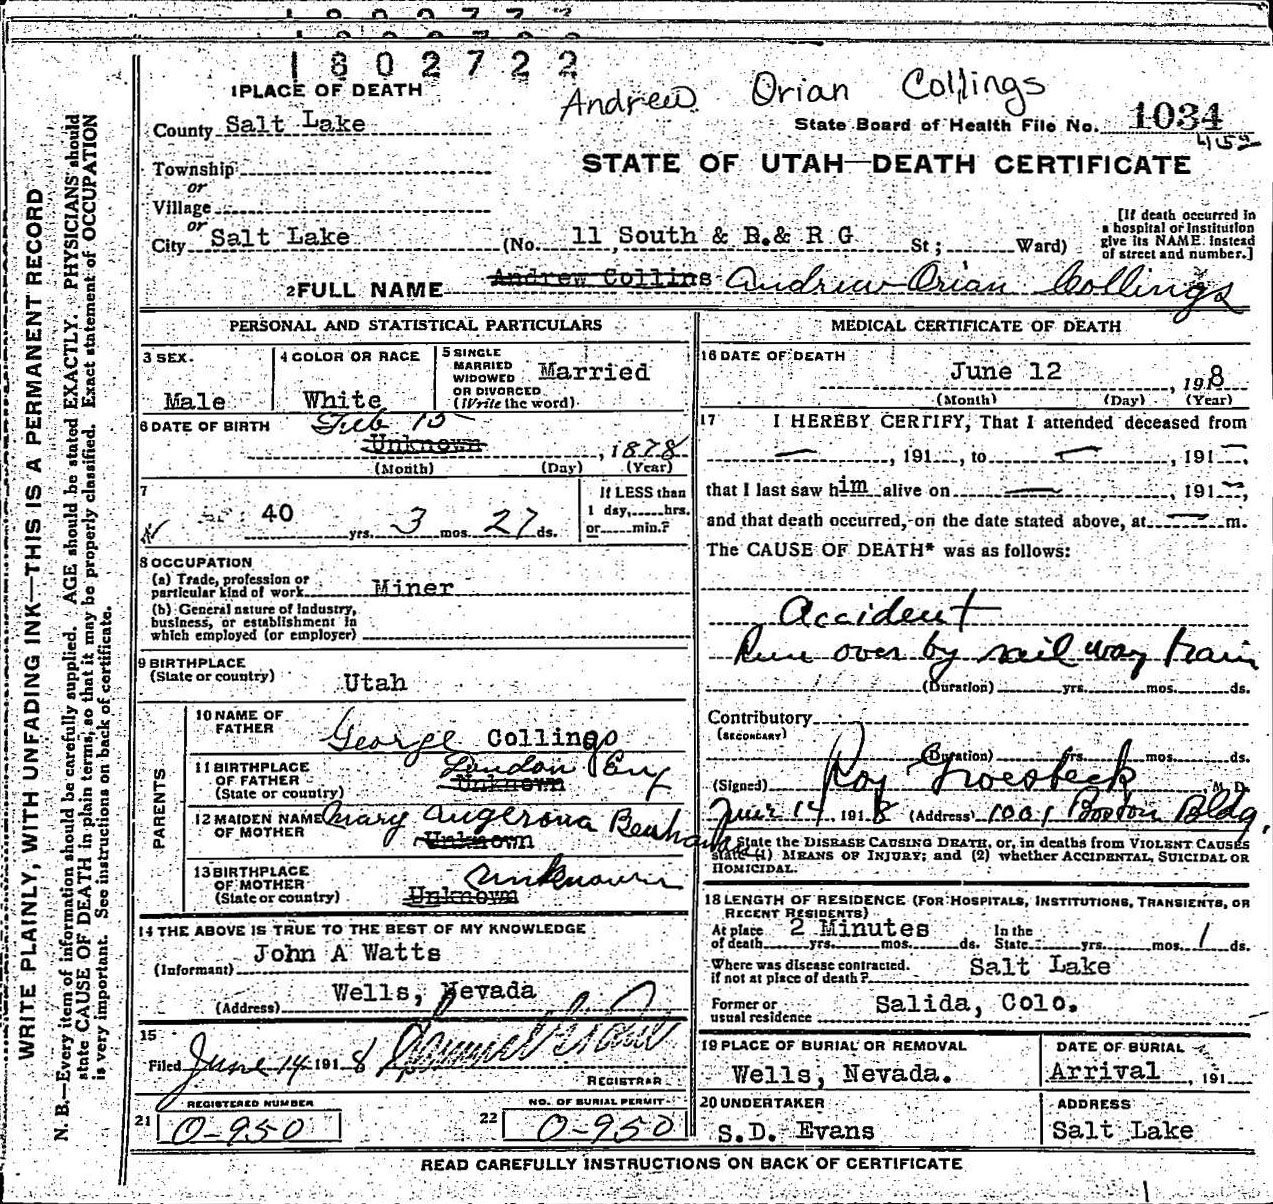 1802722
Andrew Orian Collings
1 PLACE OF DEATH
County Salt Lake
State Board of Health File No. 1034
452
Township
or
Village
or
City Salt Lake
STATE OF UTAH—DEATH CERTIFICATE
(No. 11 South & B.& R G St; Ward)
[If death occurred in
a hospital or institution
give its NAME instead
of street and number.]
2 FULL NAME Andrew Collins Andrew Orian Collings
WRITE PLAINLY, WITH UNFADING INK—THIS IS A PERMANENT RECORD
N. B.—Every item of information should be carefully supplied. AGE should be stated EXACTLY. PHYSICIANS should
state CAUSE OF DEATH in plain terms, so that it may be properly classified. Exact statement of OCCUPATION
is very important. See instructions on back of certificate.
PERSONAL AND STATISTICAL PARTICULARS
3 SEX.
Male
4 COLOR OR RACE
White
5 SINGLE
MARRIED
WIDOWED
OR DIVORCED
(Write the word)
Married
6 DATE OF BIRTH
Feb 15
Unknown, 1878
(Month) (Day) (Year)
7
40 yrs. 3 mos. 27 ds.
If LESS than
1 day, hrs.
or min.?
8 OCCUPATION
(a) Trade, profession or
particular kind of work Miner
(b) General nature of Industry,
business, or establishment in
which employed (or employer)
9 BIRTHPLACE
(State or country)
Utah
PARENTS
10 NAME OF
FATHER
George Collings
11 BIRTHPLACE
OF FATHER
(State or country)
London Eng
Unknown
12 MAIDEN NAME
OF MOTHER
Mary Angerona
Unknown
13 BIRTHPLACE
OF MOTHER
(State or country)
unknown
Unknown
14 THE ABOVE IS TRUE TO THE BEST OF MY KNOWLEDGE
(Informant) John A Watts
(Address) Wells, Nevada
15
Filed June 14 1918
REGISTRAR
REGISTERED NUMBER
21 0-950
NO. OF BURIAL PERMIT
22 0-950
MEDICAL CERTIFICATE OF DEATH
16 DATE OF DEATH
June 12, 1918
(Month) (Day) (Year)
17 I HEREBY CERTIFY, That I attended deceased from
— , 191 , to — , 191 — ,
that I last saw him alive on — 191 — ,
and that death occurred, on the date stated above, at — m.
The CAUSE OF DEATH* was as follows:
Accident
Run over by railway train
(Duration) yrs. mos. ds.
Contributory
(SECONDARY)
(Duration) yrs. mos. ds.
(Signed) Roy Groesbeck M. D.
June 14 1918 (Address) 1001 Boston Bldg.
State the DISEASE CAUSING DEATH, or, in deaths from VIOLENT CAUSES
state (1) MEANS OF INJURY; and (2) whether ACCIDENTAL, SUICIDAL OR
HOMICIDAL.
18 LENGTH OF RESIDENCE (FOR HOSPITALS, INSTITUTIONS, TRANSIENTS, OR
RECENT RESIDENTS)
At place
of death 2 Minutes yrs. mos. ds.
In the
State yrs. mos. 1 ds.
Where was disease contracted.
if not at place of death? Salt Lake
Former or
usual residence Salida, Colo.
19 PLACE OF BURIAL OR REMOVAL
Wells, Nevada.
DATE OF BURIAL
Arrival, 191
20 UNDERTAKER
S.D. Evans
ADDRESS
Salt Lake
READ CAREFULLY INSTRUCTIONS ON BACK OF CERTIFICATE